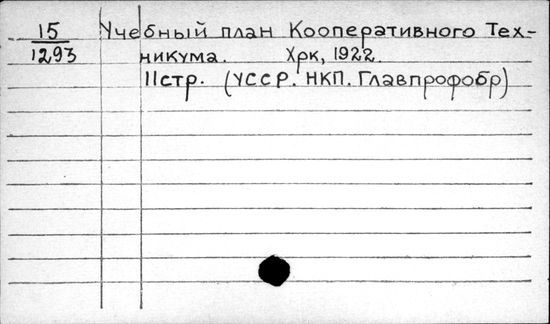 15 Учебный план Кооперативного Тех-
1293 никума. Хрк, 1922.
11стр. (УССР. НКП. Главпрофобр)